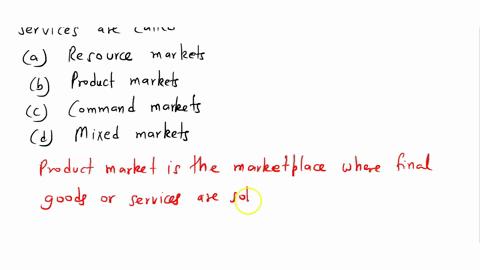 services are called
(a) Resource markets
(b) Product markets
(c) Command markets
(d) Mixed markets
Product market is the marketplace where final
goods or services are sol